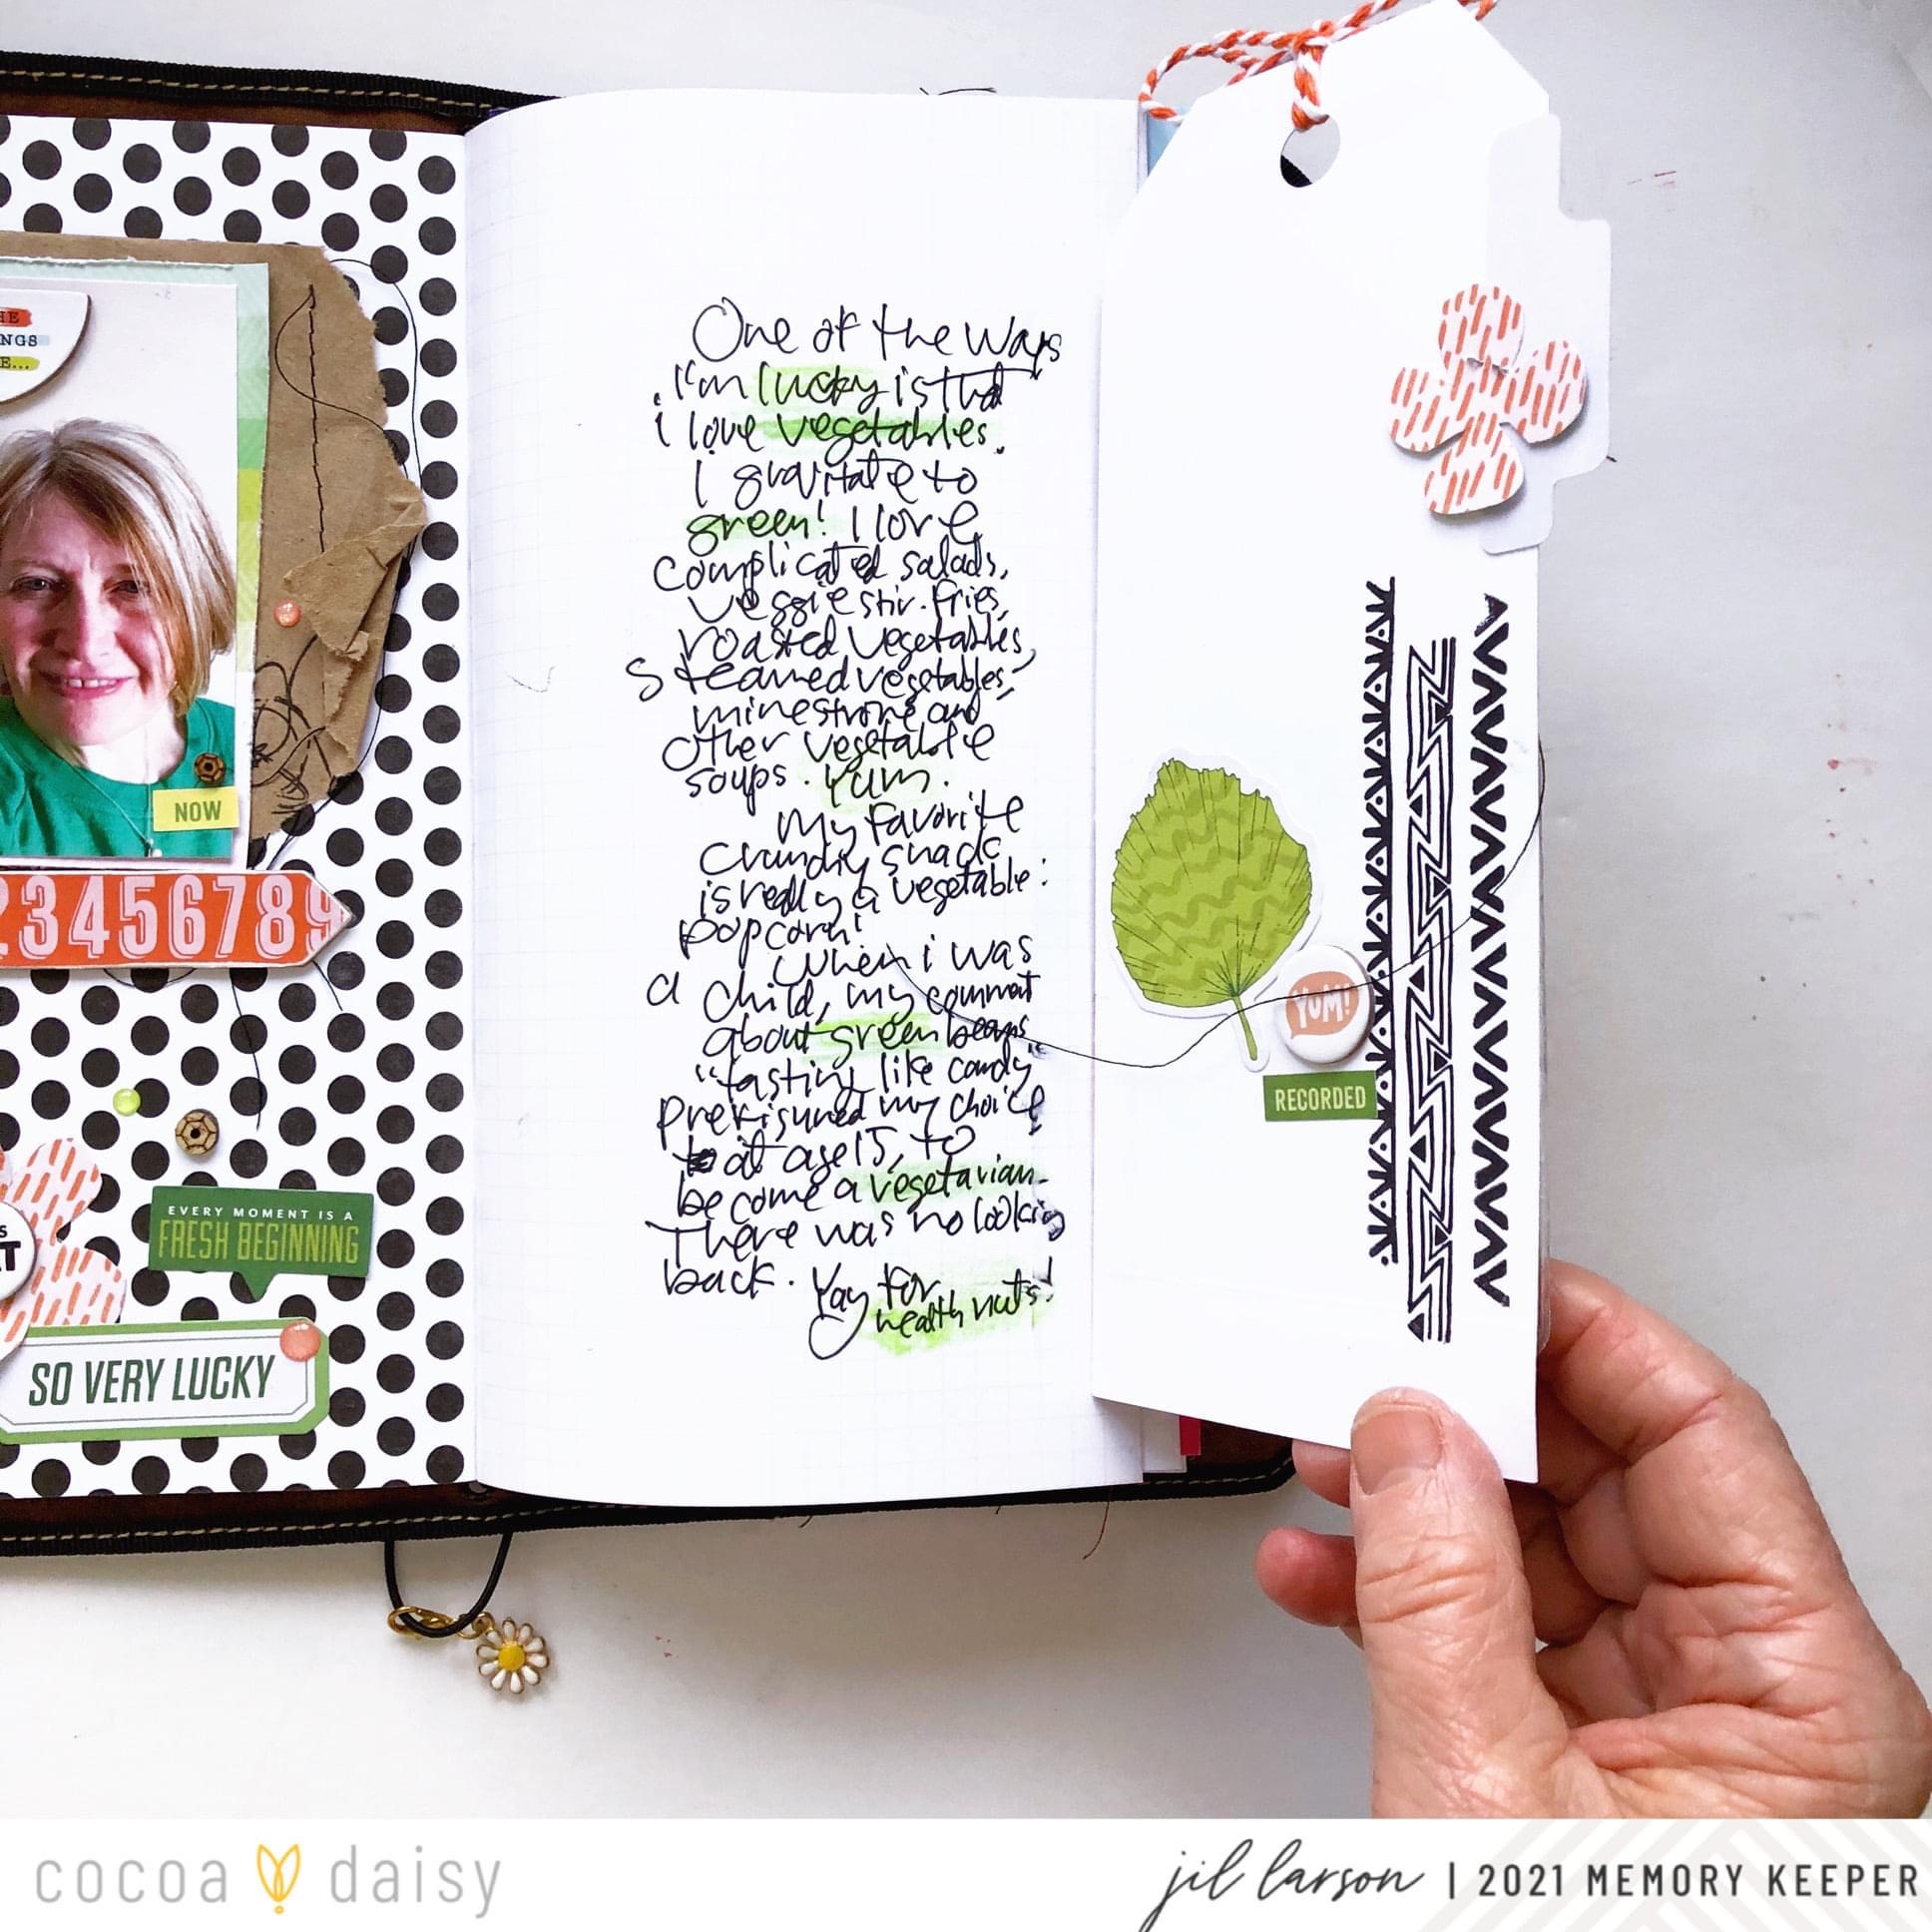 HE
NGS
E...
NOW
23456789
EVERY MOMENT IS A
FRESH BEGINNING
SO VERY LUCKY
One of the ways
I'm lucky is that
i love vegetables.
I gravitate to
green! I love
complicated salads,
veggie stir-fries,
roasted vegetables,
steamed vegetables,
minestrone and
other vegetable
soups. Yum.
My favorite
crunchy snack
is really a vegetable:
popcorn!
When i was
a child, my comment
about green beans
"tasting like candy"
prefigured my choice
at age 15, to
become a vegetarian.
There was no looking
back. Yay for
health nuts!
YUM!
RECORDED
cocoa daisy
jil larson | 2021 MEMORY KEEPER